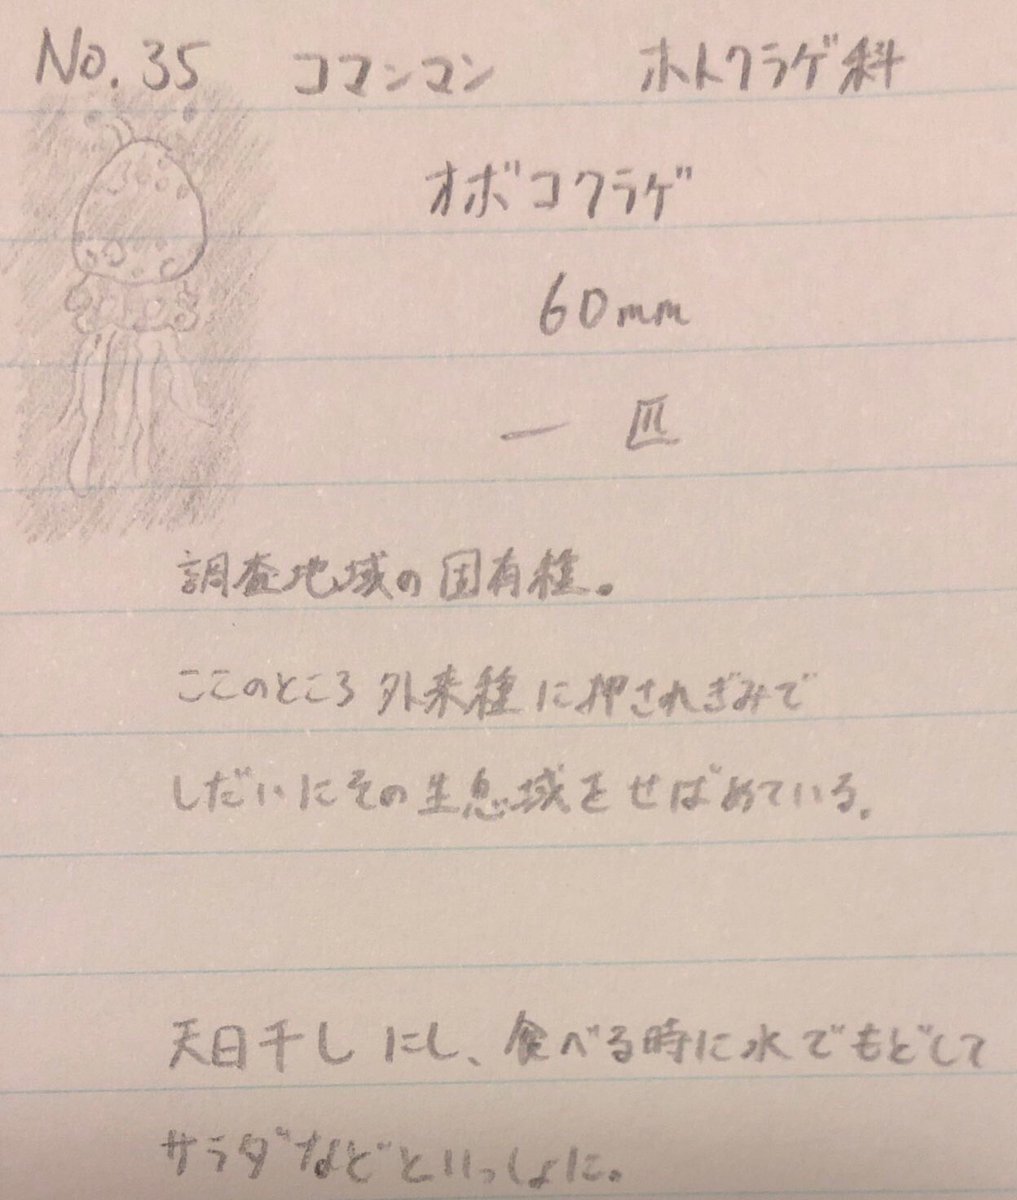 No. 35 コマンマン ホトクラゲ科
オボコクラゲ
60mm
一匹
調査地域の固有種。
ここのところ外来種に押されぎみで
しだいにその生息域をせばめている。
天日干しにし、食べる時に水でもどして
サラダなどといっしょに。